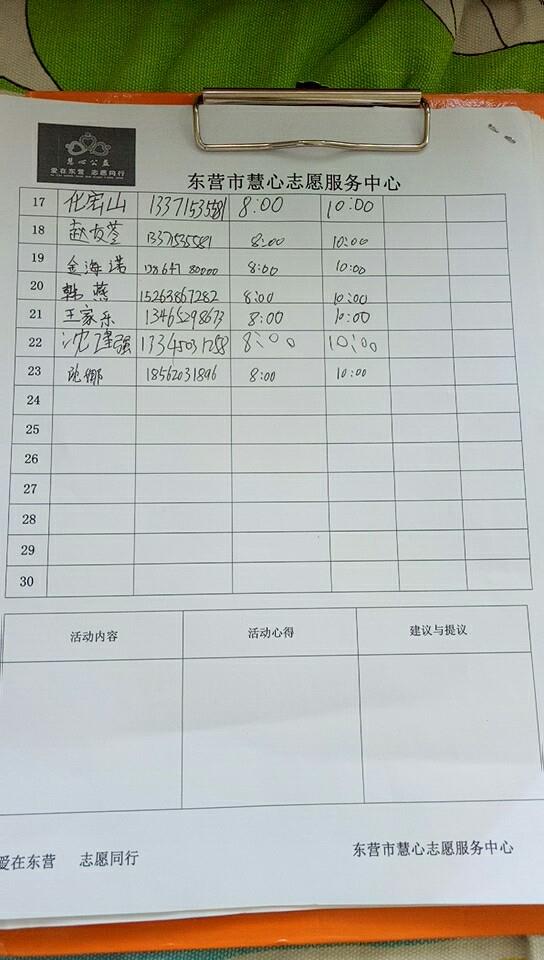 慧心公益
爱在东营 志愿同行
东营市慧心志愿服务中心
17 化宏山 13371535581 8:00 10:00
18 赵友苓 13371535581 8:00 10:00
19 金海诺 8:00 10:00
20 韩燕 15263867282 8:00 10:00
21 王家乐 13465298673 8:00 10:00
22 沈瑾强 13345031258 8:00 10:00
23 娜 18562031896 8:00 10:00
24
25
26
27
28
29
30
活动内容 活动心得 建议与提议
爱在东营 志愿同行 东营市慧心志愿服务中心